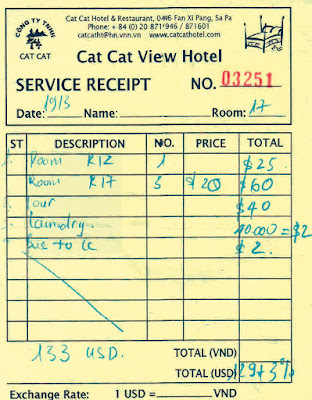 CÔNG TY TNHH
CAT CAT
Cat Cat Hotel & Restaurant, 046 Fan Xi Pang, Sa Pa
Phone: + 84 (0) 20 871946 / 871601
catcatht@hn.vnn.vn www.catcathotel.com
Cat Cat View Hotel
SERVICE RECEIPT NO. 03251
Date: 19/3 Name: Room: 17
ST DESCRIPTION NO. PRICE TOTAL
Room R12 1 $25
Room R17 3 $20 $60
Tour $40
Laundry. 40.000 = $2
Bus to LC $2.
133 USD. TOTAL (VND)
TOTAL (USD) 129 + 3%
Exchange Rate: 1 USD = VND